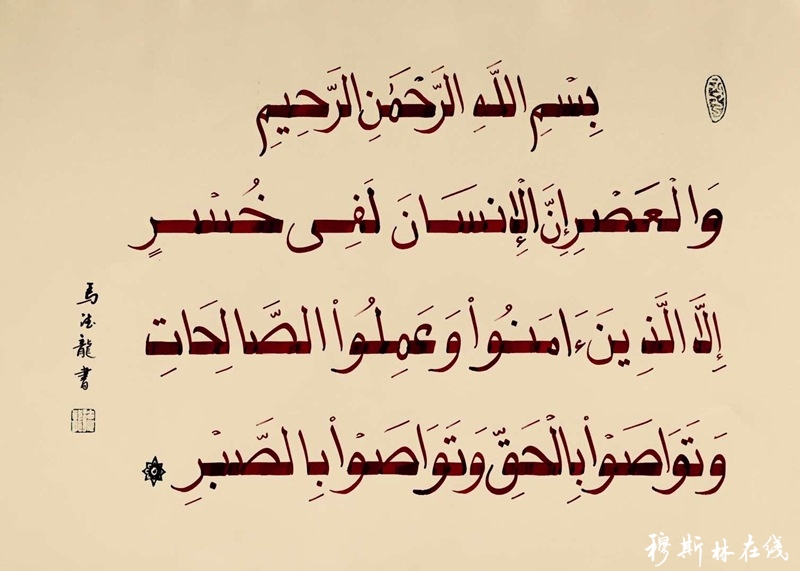 بِسْمِ اللَّهِ الرَّحْمَٰنِ الرَّحِيمِ
وَالْعَصْرِ إِنَّ الْإِنسَانَ لَفِى خُسْرٍ
إِلَّا الَّذِينَ ءَامَنُواْ وَعَمِلُواْ الصَّالِحَاتِ
وَتَوَاصَوْاْ بِالْحَقِّ وَتَوَاصَوْاْ بِالصَّبْرِ
馬德龍書
穆斯林在线